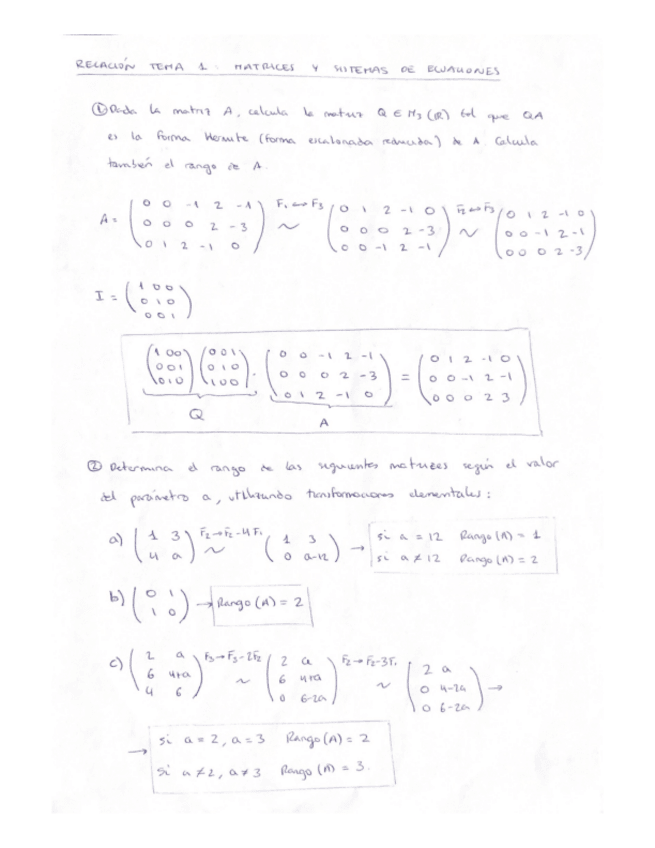 RELACIÓN TEMA 1: MATRICES Y SITEMAS DE ECUACIONES
① Dada la matriz A, calcula la matriz Q ∈ M₃(ℝ) tal que QA
es la Forma Hermite (forma escalonada reducida) de A. Calcula
también el rango de A.
A = (0 0 -1 2 -1 / 0 0 0 2 -3 / 0 1 2 -1 0) F₁↔F₃ ~ (0 1 2 -1 0 / 0 0 0 2 -3 / 0 0 -1 2 -1) F₂↔F₃ ~ (0 1 2 -1 0 / 0 0 -1 2 -1 / 0 0 0 2 -3)
I = (1 0 0 / 0 1 0 / 0 0 1)
(1 0 0 / 0 0 1 / 0 1 0) (0 0 1 / 0 1 0 / 1 0 0) · (0 0 -1 2 -1 / 0 0 0 2 -3 / 0 1 2 -1 0) = (0 1 2 -1 0 / 0 0 -1 2 -1 / 0 0 0 2 3)
Q A
② Determina el rango de las siguientes matrices según el valor
del parámetro a, utilizando transformaciones elementales:
a) (1 3 / 4 a) F₂→F₂-4F₁ ~ (1 3 / 0 a-12) → si a = 12 Rango(A) = 1
si a ≠ 12 Rango(A) = 2
b) (0 1 / 1 0) → Rango(A) = 2
c) (2 a / 6 4+a / 4 6) F₃→F₃-2F₂ ~ (2 a / 6 4+a / 0 6-2a) F₂→F₂-3F₁ ~ (2 a / 0 4-2a / 0 6-2a) →
→ si a = 2, a = 3 Rango(A) = 2
si a ≠ 2, a ≠ 3 Rango(A) = 3.